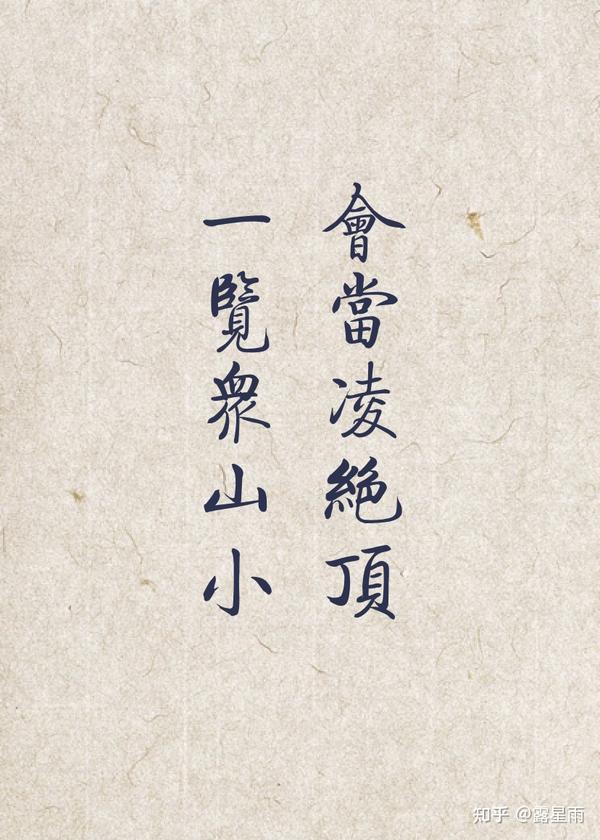 會當凌絕頂
一覽衆山小
知乎 @露星雨